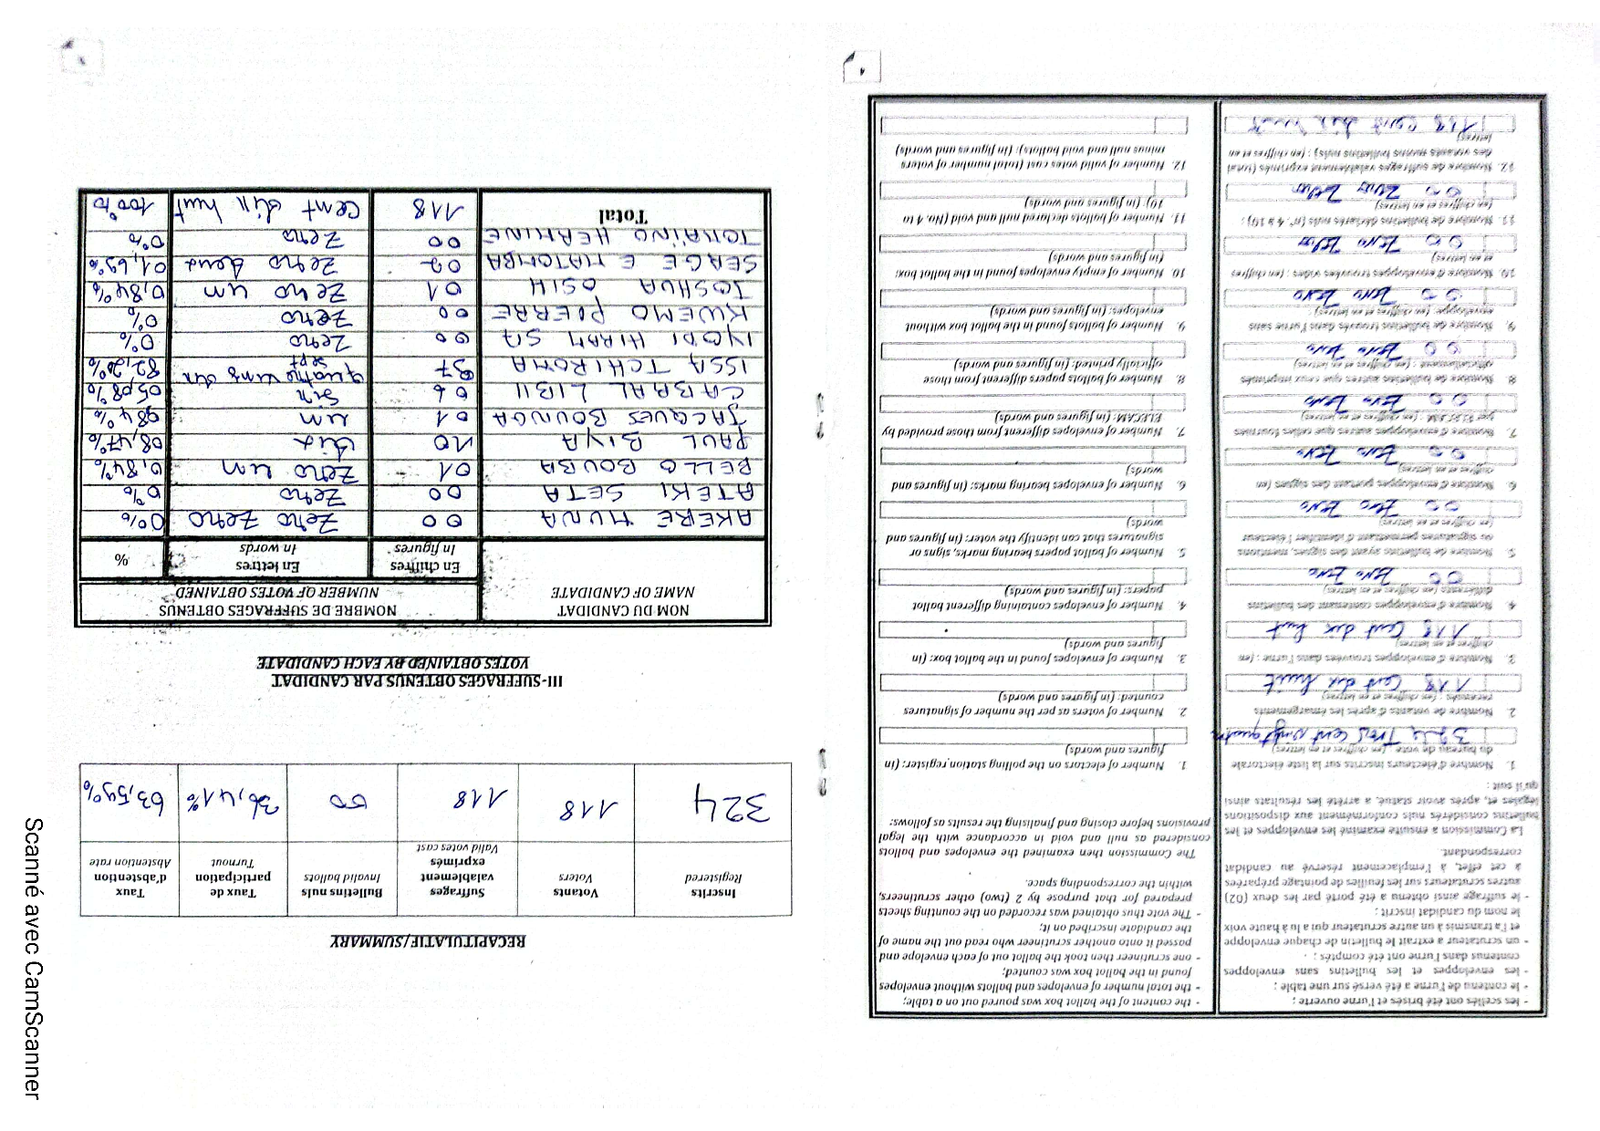 - les scellés ont été brisés et l'urne ouverte ;
- le contenu de l'urne a été versé sur une table ;
- les enveloppes et les bulletins sans enveloppes
contenus dans l'urne ont été comptés ;
- un scrutateur a extrait le bulletin de chaque enveloppe
et l'a transmis à un autre scrutateur qui a lu à haute voix
le nom du candidat inscrit ;
- le suffrage ainsi obtenu a été porté par les deux (02)
autres scrutateurs sur les feuilles de pointage préparées
à cet effet, à l'emplacement réservé au candidat
correspondant.
La Commission a ensuite examiné les enveloppes et les
bulletins considérés nuls conformément aux dispositions
légales et, après avoir statué, a arrêté les résultats ainsi
qu'il suit :
1. Nombre d'électeurs inscrits sur la liste électorale
du bureau de vote : (en chiffres et en lettres)
324 Trois cent vingt quatre
2. Nombre de votants d'après les émargements
recensés : (en chiffres et en lettres)
118 Cent dix huit
3. Nombre d'enveloppes trouvées dans l'urne : (en
chiffres et en lettres)
118 Cent dix huit
4. Nombre d'enveloppes contenant des bulletins
différents : (en chiffres et en lettres)
00 Zéro Zéro
5. Nombre de bulletins ayant des signes, mentions
ou signatures permettant d'identifier l'électeur
(en chiffres et en lettres)
00 Zéro Zéro
6. Nombre d'enveloppes portant des signes (en
chiffres et en lettres)
00 Zéro Zéro
7. Nombre d'enveloppes autres que celles fournies
par ELECAM : (en chiffres et en lettres)
00 Zéro Zéro
8. Nombre de bulletins autres que ceux imprimés
officiellement : (en chiffres et en lettres)
00 Zéro Zéro
9. Nombre de bulletins trouvés dans l'urne sans
enveloppe: (en chiffres et en lettres)
00 Zéro Zéro
10. Nombre d'enveloppes trouvées vides : (en chiffres
et en lettres)
00 Zéro Zéro
11. Nombre de bulletins déclarés nuls (n° 4 à 10) :
(en chiffres et en lettres)
00 Zéro Zéro
12. Nombre de suffrages valablement exprimés (total
des votants moins bulletins nuls) : (en chiffres et en
lettres)
118 Cent dix huit
- the content of the ballot box was poured out on a table;
- the total number of envelopes and ballots without envelopes
found in the ballot box was counted;
- one scrutineer then took the ballot out of each envelope and
passed it onto another scrutineer who read out the name of
the candidate inscribed on it;
- The vote thus obtained was recorded on the counting sheets
prepared for that purpose by 2 (two) other scrutineers,
within the corresponding space.
The Commission then examined the envelopes and ballots
considered as null and void in accordance with the legal
provisions before closing and finalising the results as follows:
1. Number of electors on the polling station register: (in
figures and words)
2. Number of voters as per the number of signatures
counted: (in figures and words)
3. Number of envelopes found in the ballot box: (in
figures and words)
4. Number of envelopes containing different ballot
papers: (in figures and words)
5. Number of ballot papers bearing marks, signs or
signatures that can identify the voter: (in figures and
words)
6. Number of envelopes bearing marks: (in figures and
words)
7. Number of envelopes different from those provided by
ELECAM: (in figures and words)
8. Number of ballots papers different from those
officially printed: (in figures and words)
9. Number of ballots found in the ballot box without
envelopes: (in figures and words)
10. Number of empty envelopes found in the ballot box:
(in figures and words)
11. Number of ballots declared null and void (No. 4 to
10): (in figures and words)
12. Number of valid votes cast (total number of voters
minus null and void ballots): (in figures and words)
RECAPITULATIF/SUMMARY
Inscrits Registered | Votants Voters | Suffrages valablement exprimés Valid votes cast | Bulletins nuls Invalid ballots | Taux de participation Turnout | Taux d'abstention Abstention rate
324 | 118 | 118 | 00 | 36,41% | 63,59%
III- SUFFRAGES OBTENUS PAR CANDIDAT
VOTES OBTAINED BY EACH CANDIDATE
NOM DU CANDIDAT NAME OF CANDIDATE | NOMBRE DE SUFFRAGES OBTENUS NUMBER OF VOTES OBTAINED
En chiffres In figures | En lettres In words | %
AKERE MUNA 00 Zero Zero 0%
ATEKI SETA 00 Zero 0%
BELLO BOUBA 01 Zero un 0,84%
PAUL BIYA 10 dix 08,47%
JACQUES BOUNGA 01 un 084%
CABRAL LIBII 06 six 05,08%
ISSA TCHIROMA 97 quatre vingt dix sept 82,20%
IYODI HIRAM SA 00 Zero 0%
KWEMO PIERRE 00 Zero 0%
JOSHUA OSIH 01 Zero un 0,84%
SERGE E MATOMBA 02 Zero deux 01,69%
TOMAÏNO HERMINE 00 Zero 0%
Total 118 Cent dix huit 100%
Scanné avec CamScanner